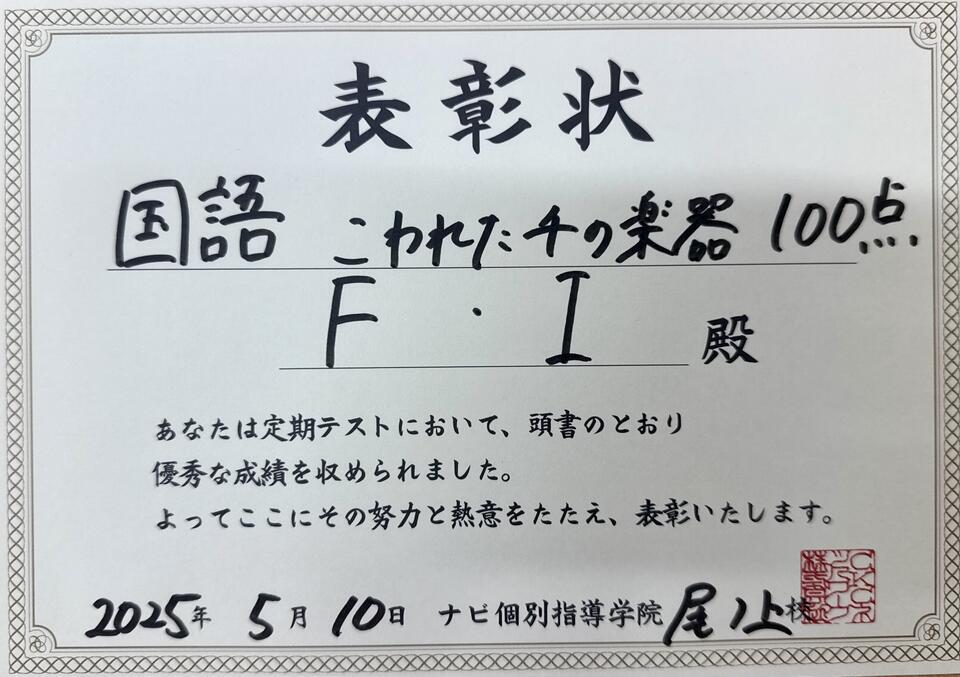 表彰状
国語 こわれた千の楽器 100点
F・I 殿
あなたは定期テストにおいて、頭書のとおり
優秀な成績を収められました。
よってここにその努力と熱意をたたえ、表彰いたします。
2025年 5月 10日 ナビ個別指導学院 尾ノ上校